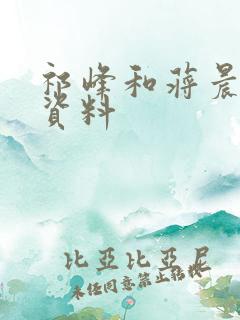 祁峰和蒋晨
資料
比亞比亞尼
未經同意禁止轉載